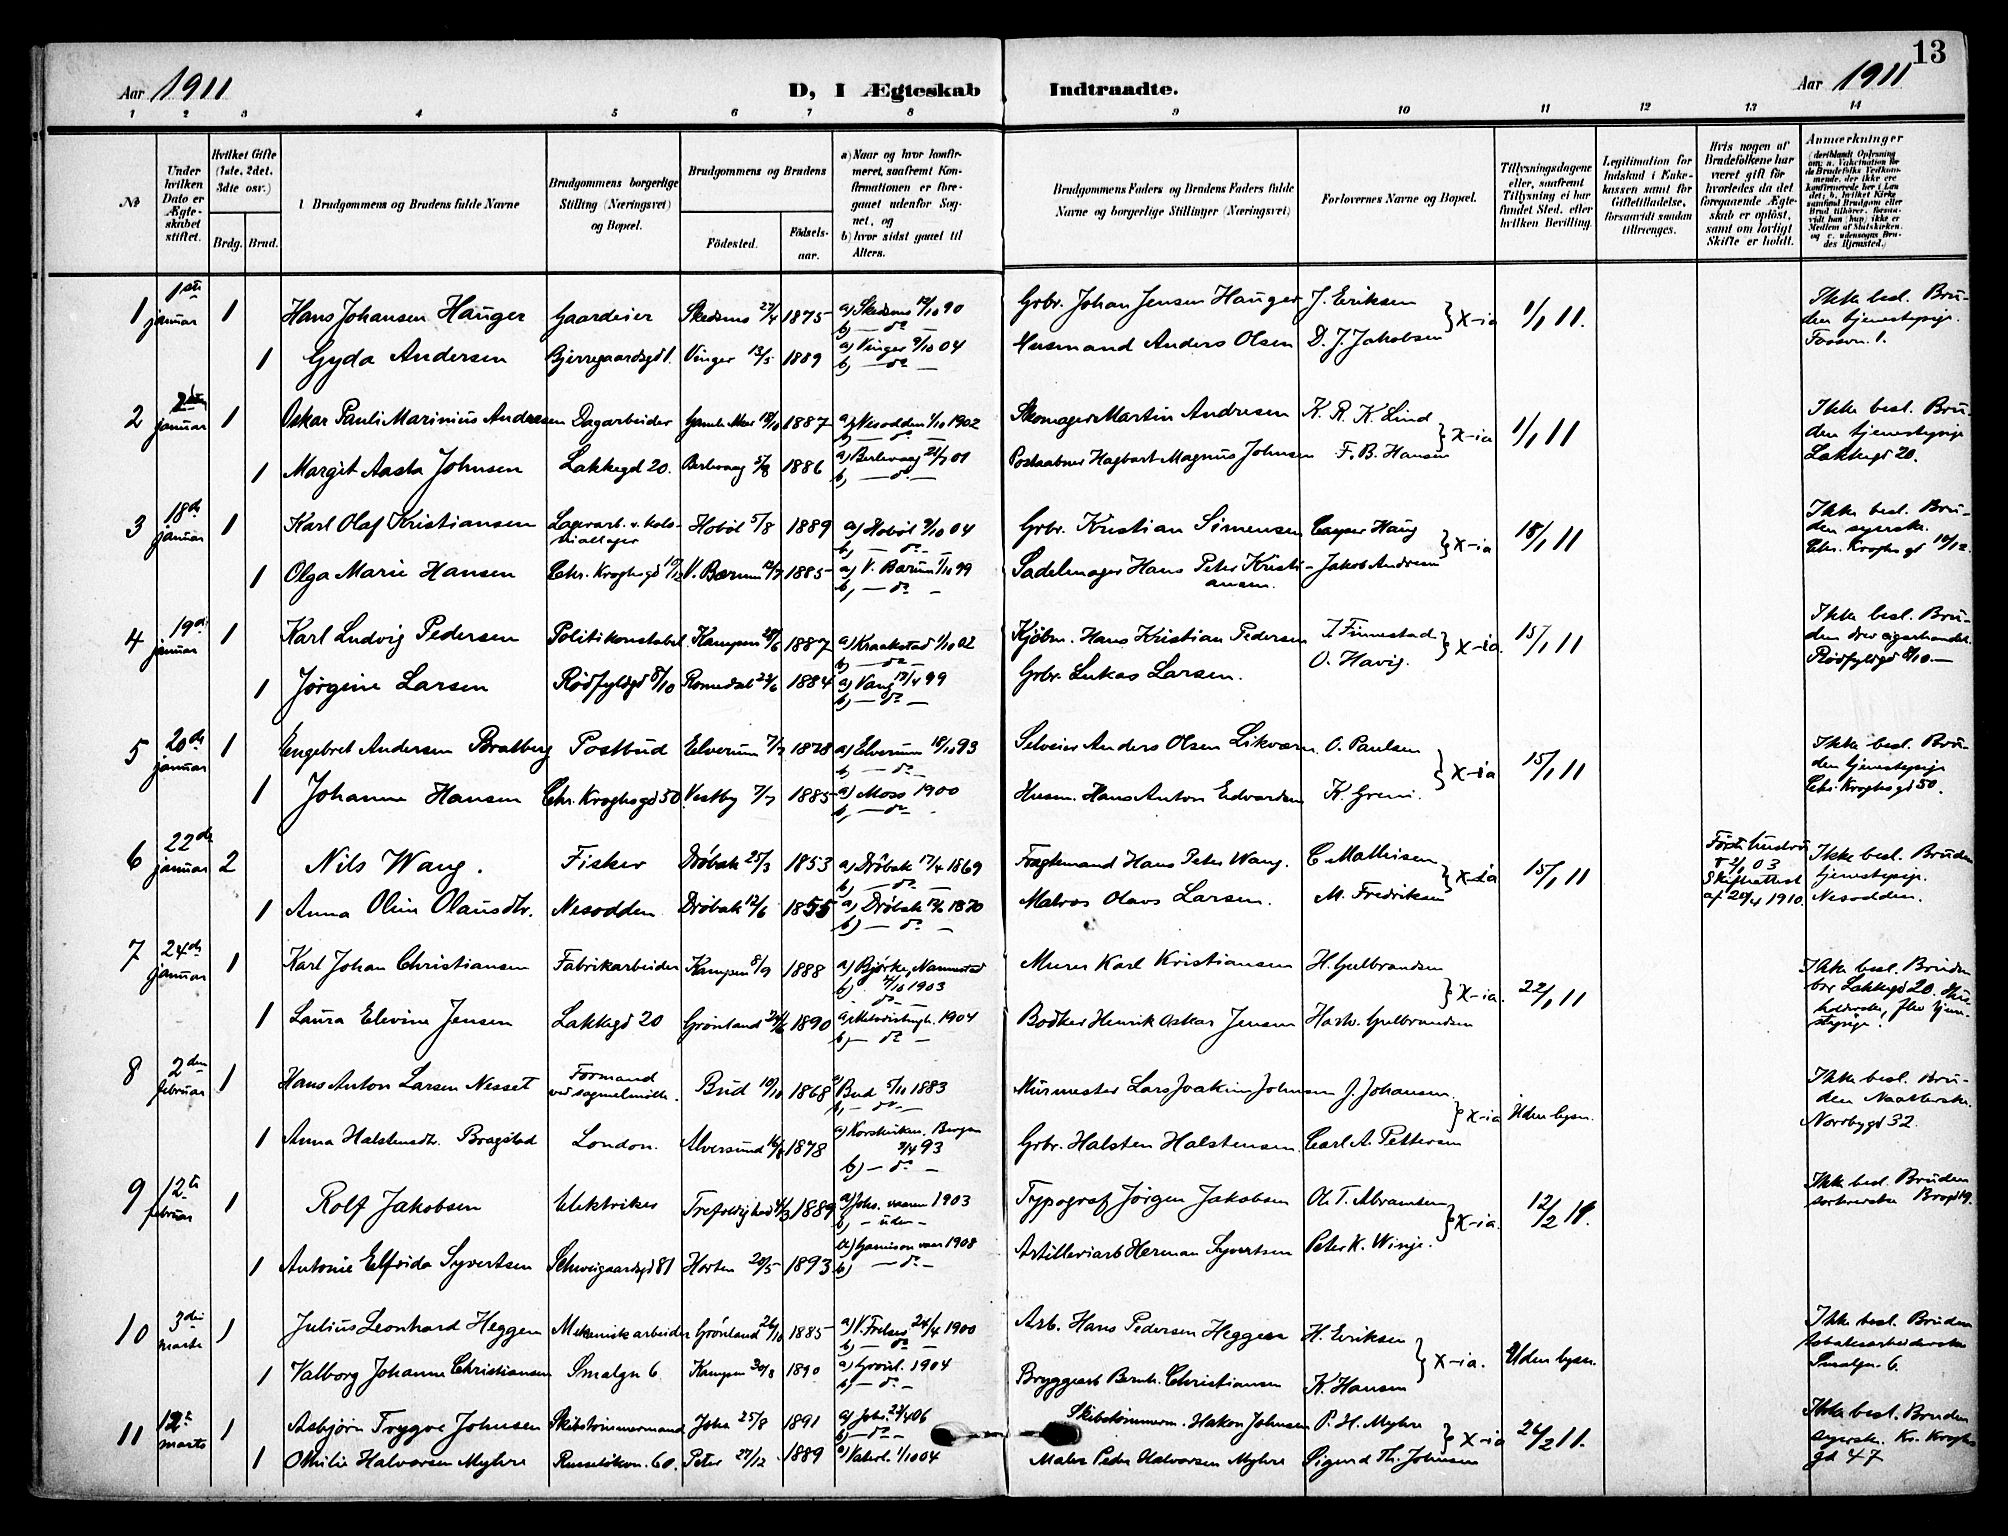 13
Aar 1911 D, I Ægteskab Indtraadte. Aar 1911
1 2 3 4 5 6 7 8 9 10 11 12 13 14
No
Under hvilken Dato er Ægteskabet stiftet.
Hvilket Gifte (1ste, 2det, 3die osv.)
Brdg. Brud.
Brudgommens og Brudens fulde Navne
Brudgommens borgerlige Stilling (Næringsvei) og Bopæl.
Brudgommens og Brudens
Fødested. Fødselsaar.
a) Naar og hvor konfirmeret, saafremt Konfirmationen er foregaaet udenfor Sognet, og
b) hvor sidst gaaet til Alters.
Brudgommens Faders og Brudens Faders fulde Navne og borgerlige Stillinger (Næringsvei)
Forlovernes Navne og Bopæl.
Tillysningsdagene eller, saafremt Tillysning ei har fundet Sted, efter hvilken Bevilling.
Legitimation for Indskud i Enkekassen samt for Giftetilladelse, forsaavidt saadan tiltrænges.
Hvis nogen af Brudefolkene har været gift før hvorledes da det foregaaende Ægteskab er opløst, samt om lovligt Skifte er holdt.
Anmærkninger
1 1ste januar 1 Hans Johansen Hauger Gaardeier Skedsmo 27/4 1875 a) Skedsmo 12/10 90 b) — do Grbr. Johan Jensen Hauger J. Eriksen } X-ia 1/1 11. Ikke besl. Bruden tjenestepige.
1 Gyda Andersen Bjerregaardsgd 1. Vinger 13/5 1889 a) Vinger 9/10 04 b) — do — Husmand Anders Olsen D. J. Jakobsen
2 januar 1 Oskar Pauli Marinius Andresen Dagarbeider Gamle Aker 18/10 1887 a) Nesodden 1/10 1902 b) — do — Skomager Martin Andresen K. R. K. Lind } X-ia 1/1 11 Ikke besl. Bruden tjenestepige Lakkegd 20.
1 Margit Aasta Johnsen Lakkegd 20. Berlevaag 5/8 1886 a) Berlevaag 21/7 01 b) — do — Postaabner Hagbart Magnus Johnsen F. B. Hansen
3 18de januar 1 Karl Olaf Kristiansen Lagerarb. v. Hobøl 5/8 1889 a) Hobøl 9/10 04 b) — do — Grbr. Kristian Simensen Casper Haug } X-ia 18/1 11 Ikke besl. Bruden syerske. Chr. Kroghsgd 10/12.
1 Olga Marie Hansen Chr. Kroghsgd V. Bærum 1885 a) V. Bærum 1/10 99 b) — do — Sadelmager Hans Peter Kristiansen. Jakob Andresen
4 19de januar 1 Karl Ludvig Pedersen Politikonstabel Kampen 28/6 1887 a) Kraakstad 1/10 02 b) — do — Kjøbm. Hans Kristian Pedersen I. Finnestad } X-ia. 15/1 11 Ikke besl. Bruden drev cigarhandel. Rødfyldgd 8/10 —
1 Jørgine Larsen Rødfyldgd 8/10 Romedal 22/6 1884 a) Vang 17/4 99 b) — do — Grbr. Lukas Larsen. O. Havig.
5 20de januar 1 Engebret Andersen Bratberg Postbud Elverum 7/7 1878 a) Elverum 18/10 93 b) — do — Selveier Anders Olsen Likværn O. Paulsen } X-ia 15/1 11 Ikke besl. Bruden tjenestepige Chr. Kroghsgd 50.
1 Johanne Hansen Chr. Kroghsgd 50. Vestby 7/7 1885 a) Moss 1900 b) — do Husm. Hans Anton Edvardsen K. Greni.
6 22de januar 2 Nils Wang. Fisker Drøbak 25/3 1853 a) Drøbak 17/4 1869 b) — do — Fragtemand Hans Peter Wang. C. Mathisen } X-ia 15/1 11 Første hustru † 2/1 03 Skifteattest af 20/4 1910. Ikke besl. Bruden tjenestepige. Nesodden.
1 Anna Oline Olausdtr. Nesodden Drøbak 12/6 1855 a) Drøbak 1870 b) — do — Matros Olaus Larsen. M. Fredriksen
7 24de januar 1 Karl Johan Christiansen Fabrikarbeider Kampen 8/9 1888 a) Bjørke, Nannestad 4/10 1903 b) do — Murer Karl Kristiansen H. Gulbrandsen } X-ia. 22/1 11 Ikke besl. Bruden bor Lakkegd 20.
1 Laura Elevine Jensen Lakkegd 20 Grønland 1890 a) Metodistmgh. 1904 b) — do — Bødker Henrik Oskar Jensen Harw. Gulbrandsen
8 2den februar 1 Hans Anton Larsen Nesset Formand ved sagmølle. Bud 10/10 1868 a) Bud 5/11 1883 b) — do — Murmester Lars Joakim Johnsen J. Johansen. } X-ia Uden lysn. Ikke besl. Bruden Norbygd 32.
1 Anna Halstensdt. Bragstad London. Alversund 1878 a) Korskirken, Bergen 9/4 93 b) — do — Grbr. Halsten Halstensen. Carl A. Pettersen
9 12te februar 1 Rolf Jakobsen Elektriker Trefoldighed 1889 a) Johs. vaaren 1903 b) — uden — Typograf Jørgen Jakobsen Ole T. Abramsen } X-ia. 12/2 11. Ikke besl. Bruden
1 Antonie Elfrida Syvertsen Schweigaardsgd 81 Horten 20/5 1893 a) Garnison vaar 1908 b) — do — Artilleriarb Herman Syvertsen Peter K. Winje.
10 3die marts 1 Julius Leonhard Heggen Mekanisk arbeider Grønland 26/10 1885 a) V. Frelses 24/4 1900 b) — do — Arb. Hans Pedersen Heggen H. Eriksen } X-ia. Uden lysn. Ikke besl. Bruden tobaksarbeiderske Smalgn. 6.
1 Valborg Johanne Christiansen Smalgn 6 Kampen 30/8 1890 a) Grønl. 1904 b) — do — Bryggearb Bernh. Christiansen K. Hansen
11 12te marts 1 Asbjørn Trygve Johnsen Skibstømmermand Joha 25/8 1891 a) Johs. 22/4 06 b) — do — Skibstømmerm. Hakon Johnsen P. H. Myhre } X-ia 26/2 11. Ikke besl. Bruden syersk. Kr. Kroghsgd 47
1 Othilie Halvorsen Myhre Russeløkvn. 60. Peter 27/12 1889 a) Vaterl. 1/10 04 Maler Peder Halvorsen Myhre Sigurd Th. Johnsen